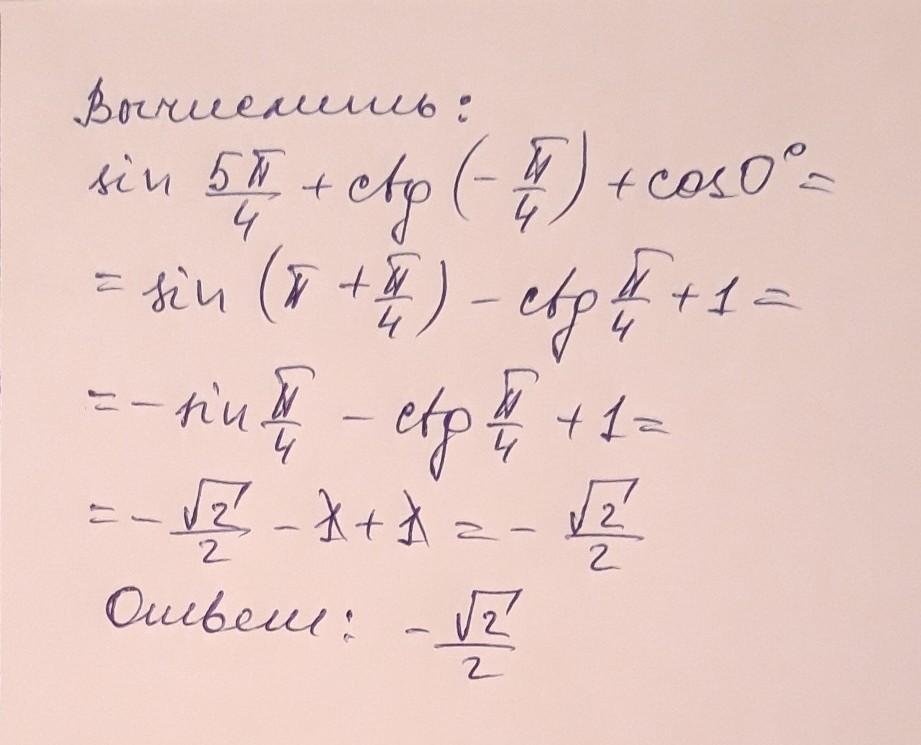 Вычислить:
sin 5π/4 + ctg (-π/4) + cos0° =
= sin (π + π/4) - ctg π/4 + 1 =
= - sin π/4 - ctg π/4 + 1 =
= - √2/2 - 1 + 1 = - √2/2
Ответ: - √2/2